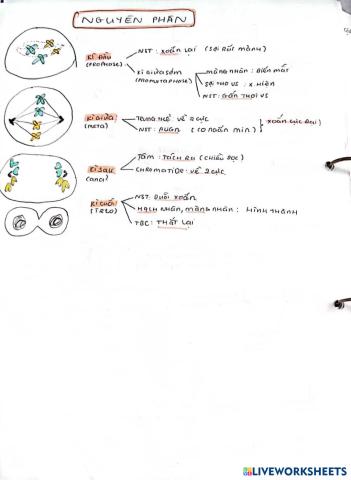 NGUYÊN PHÂN
KÌ ĐẦU
(PROPHASE)
NST: XOẮN LẠI (SỢI RẤT MẢNH)
KÌ GIỮA SỚM
(PROMETAPHASE)
MÀNG NHÂN: BIẾN MẤT
SỢI THOI VS: X.HIỆN
NST: GẮN THOI VS
KÌ GIỮA
(META)
TRUNG THỂ VỀ 2 CỰC
NST:
XOẮN CỰC ĐẠI
KÌ SAU
(ANA)
TÂM: TÁCH RA (CHIỀU DỌC)
CHROMATIDE: VỀ 2 CỰC
KÌ CUỐI
(TELO)
NST: DUỖI XOẮN
HẠCH NHÂN, MÀNG NHÂN: HÌNH THÀNH
TBC: THẮT LẠI
LIVEWORKSHEETS